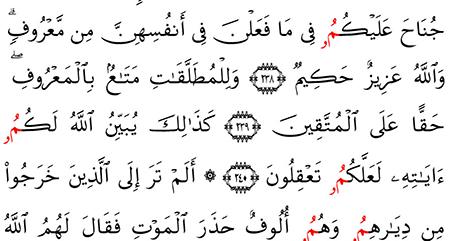 جُنَاحَ عَلَيْكُمُۥ فِى مَا فَعَلْنَ فِى أَنفُسِهِنَّ مِن مَّعْرُوفٍۗ
وَاللَّهُ عَزِيزٌ حَكِيمٌ ٢٣٨ وَلِلْمُطَلَّقَاتِ مَتَاعٌۢ بِالْمَعْرُوفِۖ
حَقًّا عَلَى الْمُتَّقِينَ ٢٣٩ كَذَٰلِكَ يُبَيِّنُ اللَّهُ لَكُمُۥ
ءَايَاتِهِۦ لَعَلَّكُمُۥ تَعْقِلُونَ ٢٤٠ ۞ أَلَمْ تَرَ إِلَى الَّذِينَ خَرَجُواْ
مِن دِيَارِهِمُۥ وَهُمُۥ أُلُوفٌ حَذَرَ الْمَوْتِ فَقَالَ لَهُمُ اللَّهُ